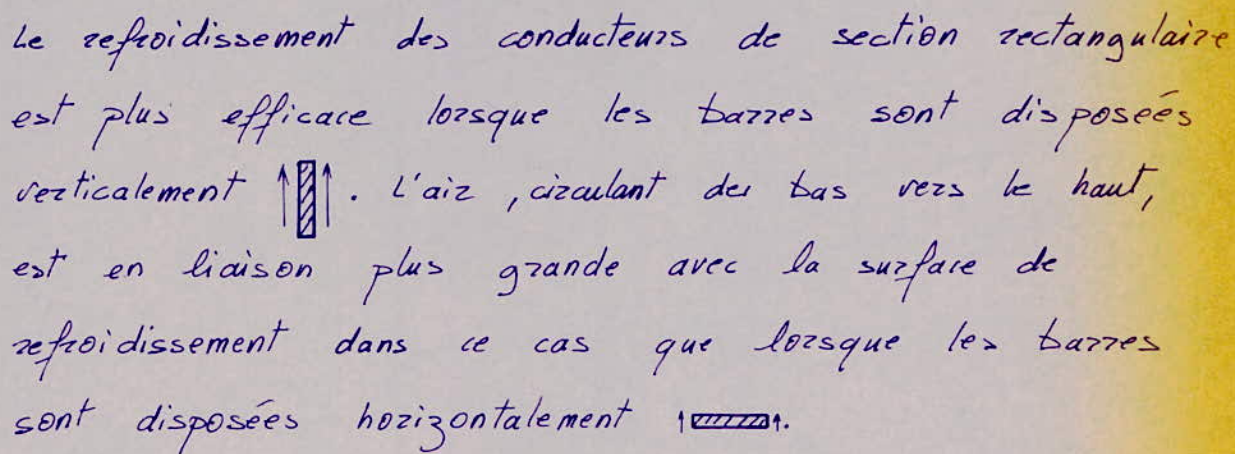 Le refroidissement des conducteurs de section rectangulaire
est plus efficace lorsque les barres sont disposées
verticalement . L'air , circulant du bas vers le haut,
est en liaison plus grande avec la surface de
refroidissement dans ce cas que lorsque les barres
sont disposées horizontalement .